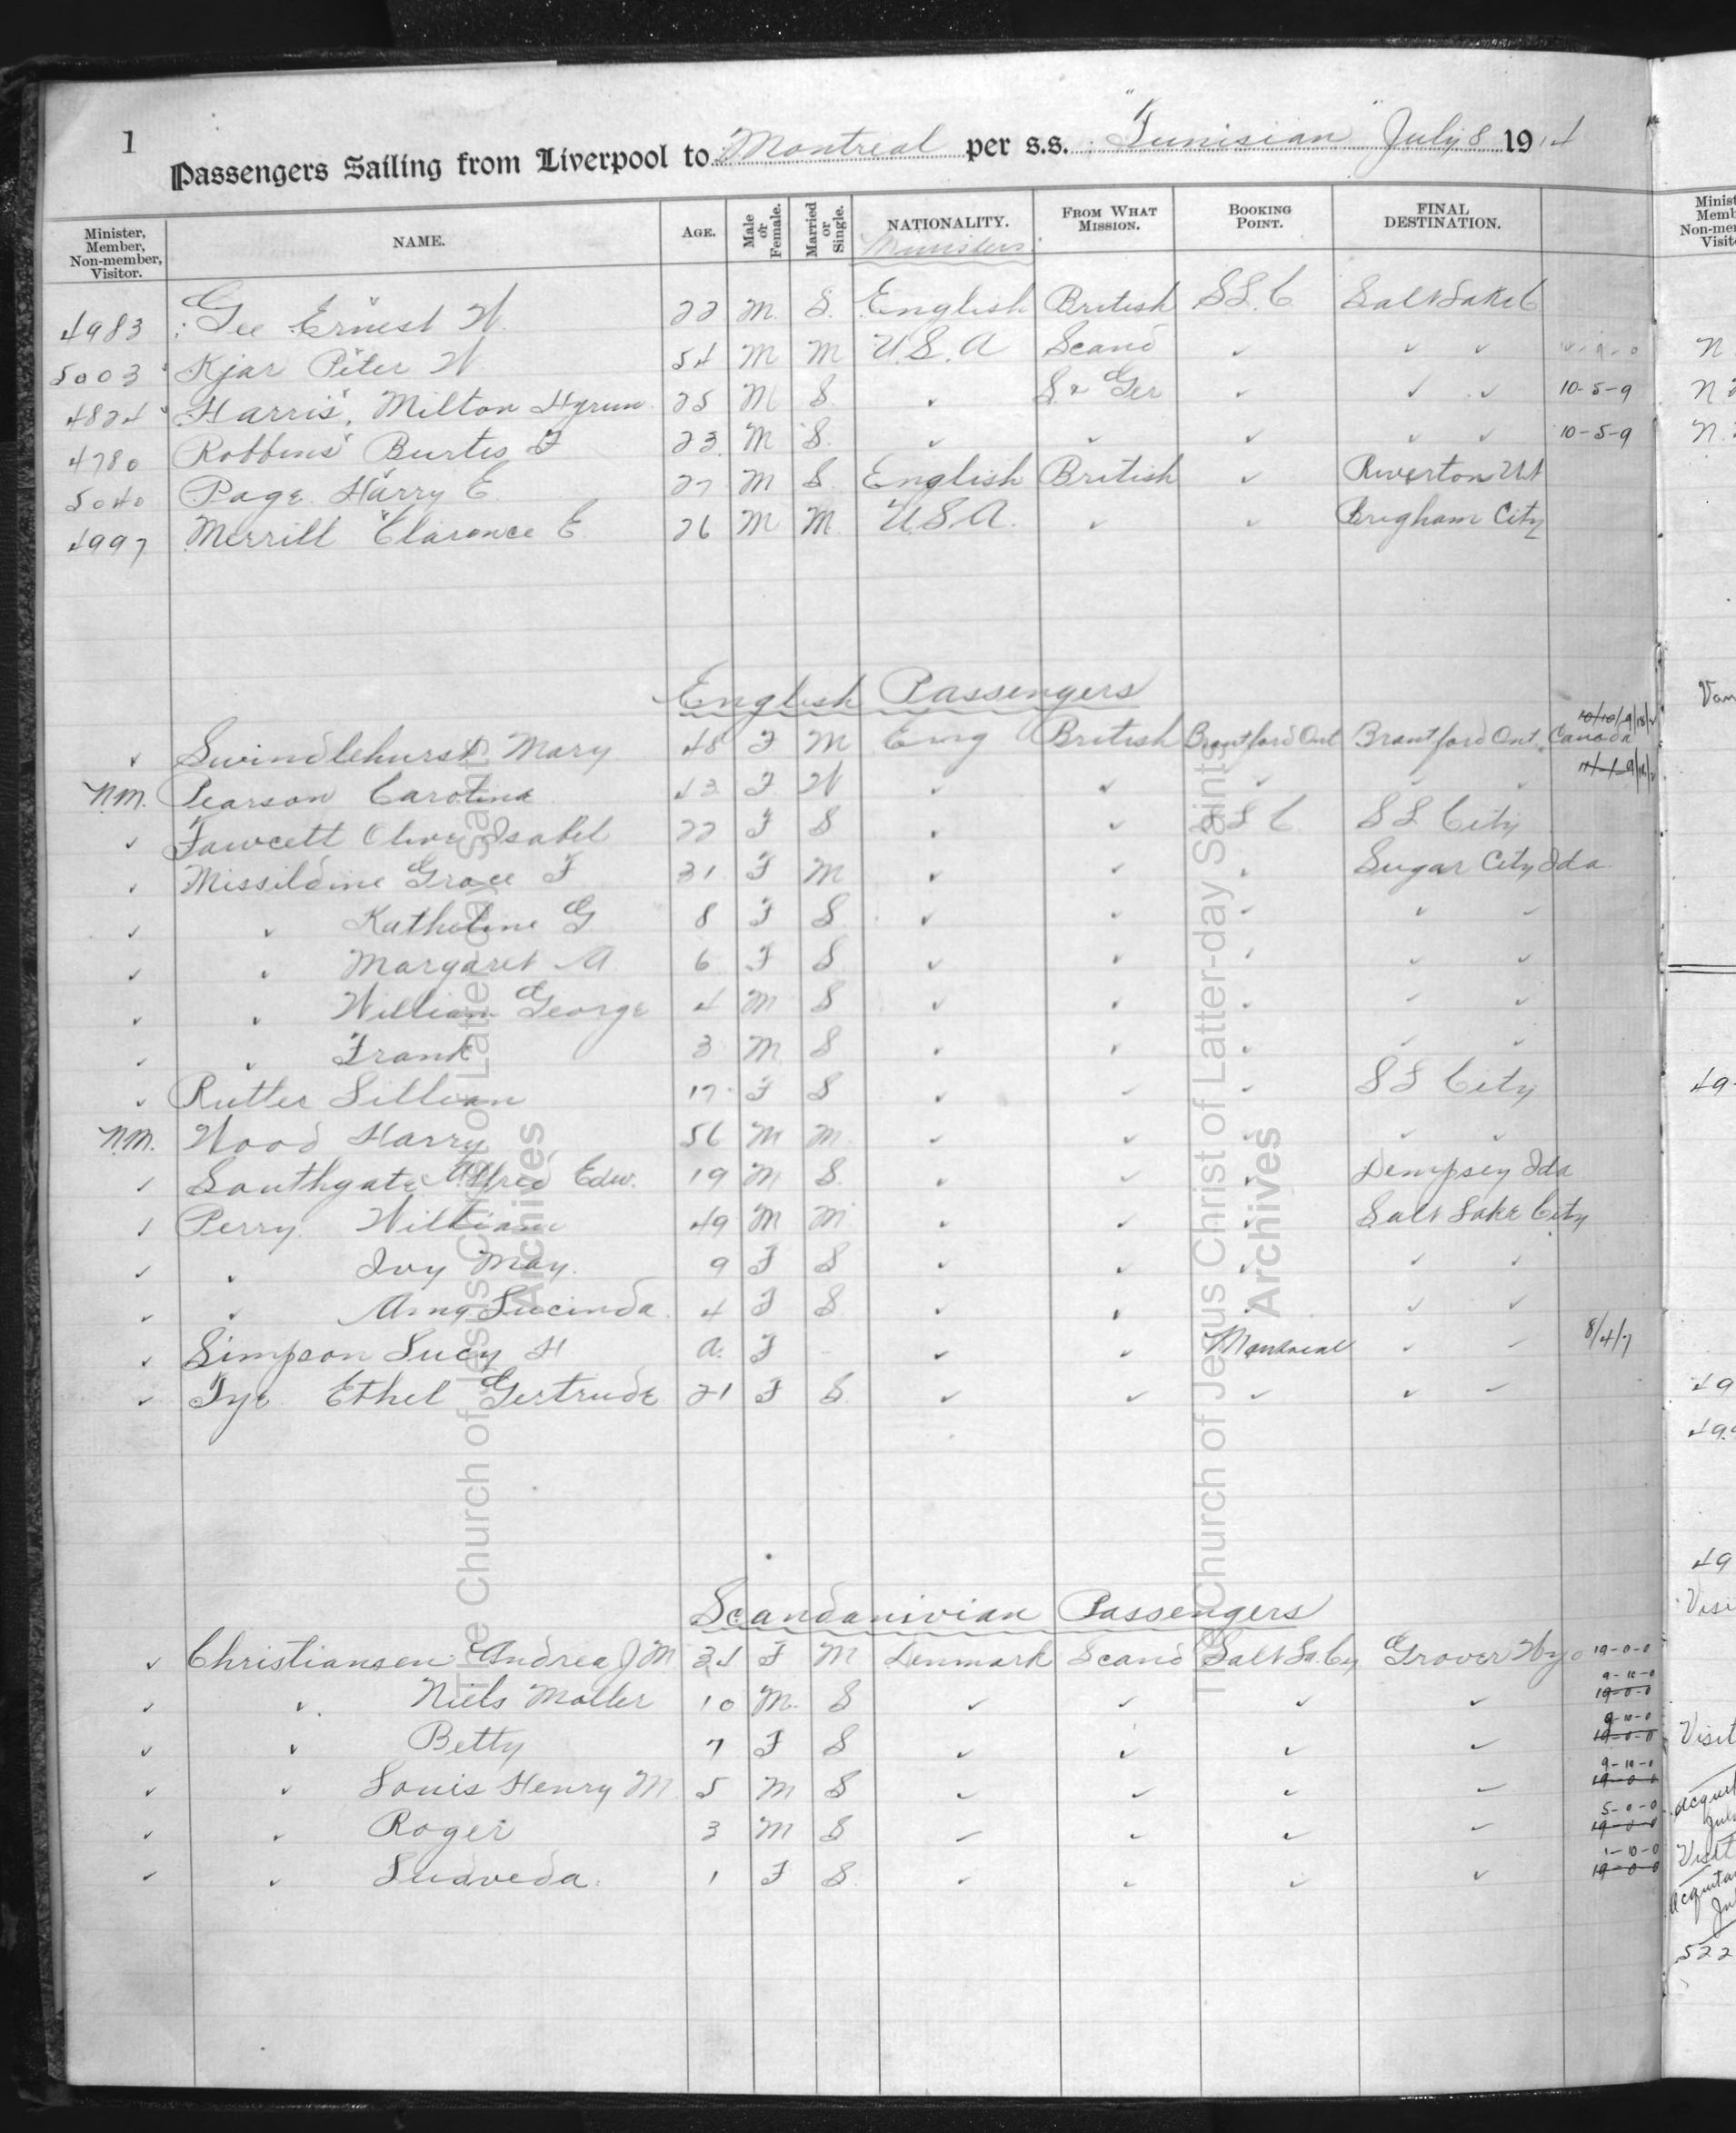 1
Passengers Sailing from Liverpool to Montreal per s.s. "Tunisian" July 8 1914
Minister, Member, Non-member, Visitor. NAME. AGE. Male or Female. Married or Single. NATIONALITY. FROM WHAT MISSION. BOOKING POINT. FINAL DESTINATION.
Ministers
4983 Gee Ernest W. 22 M. S. English British S L C Salt Lake C
5003 Kjar Peter W 54 M M U.S.A Scand ✓ ✓ ✓
4824 Harris, Milton Hyrum 25 M S ✓ S & Ger ✓ ✓ ✓ 10-5-9
4780 Robbins Burtis F 23 M S. ✓ ✓ ✓ ✓ ✓ 10-5-9
5040 Page Harry E. 27 M S English British ✓ Riverton Ut
4997 Merrill Clarence E 26 M M U.S.A. ✓ ✓ Brigham City
English Passengers
✓ Swindlehurst Mary 48 F M Eng British Brantford Ont Brantford Ont Canada
N.M. Pearson Carolina 43 F W ✓ ✓ ✓ ✓ ✓
✓ Fawcett Olive Isabel 22 F S ✓ ✓ S L C S L City
✓ Missildine Grace F 31 F M ✓ ✓ ✓ Sugar City Ida
✓ ✓ Katheline G 8 F S ✓ ✓ ✓ ✓ ✓
✓ ✓ Margaret A 6 F S ✓ ✓ ✓ ✓ ✓
✓ ✓ William George 4 M S ✓ ✓ ✓ ✓ ✓
✓ ✓ Frank 3 M S ✓ ✓ ✓ ✓ ✓
✓ Rutter Lillian 17 F S ✓ ✓ ✓ S L City
N.M. Wood Harry 56 M M ✓ ✓ ✓ ✓ ✓
✓ Southgate Alfred Edw. 19 M S. ✓ ✓ ✓ Dempsey Ida
✓ Perry William 49 M M ✓ ✓ ✓ Salt Lake City
✓ ✓ Ivy May. 9 F S ✓ ✓ ✓ ✓ ✓
✓ ✓ Amy Lucinda 4 F S ✓ ✓ ✓ ✓ ✓
✓ Simpson Lucy H a. F - ✓ ✓ Montreal ✓ ✓ 8/4/7
✓ Tye Ethel Gertrude 21 F S ✓ ✓ ✓ ✓ ✓
Scandanivian Passengers
✓ Christiansen Andrea J M 34 F M Denmark Scand Salt La. Cy Grover Wyo 19-0-0
9-10-0
✓ ✓ Niels Moller 10 M. S ✓ ✓ ✓ ✓ 19-0-0
9-10-0
✓ ✓ Betty 7 F S ✓ ✓ ✓ ✓ 19-0-0
9-10-0
✓ ✓ Louis Henry M 5 M S ✓ ✓ ✓ ✓ 19-0-0
5-0-0
✓ ✓ Roger 3 M S ✓ ✓ ✓ ✓ 19-0-0
1-10-0
✓ ✓ Ludveda. 1 F S. ✓ ✓ ✓ ✓ 19-0-0
The Church of Jesus Christ of Latter-day Saints
Archives
The Church of Jesus Christ of Latter-day Saints
Archives